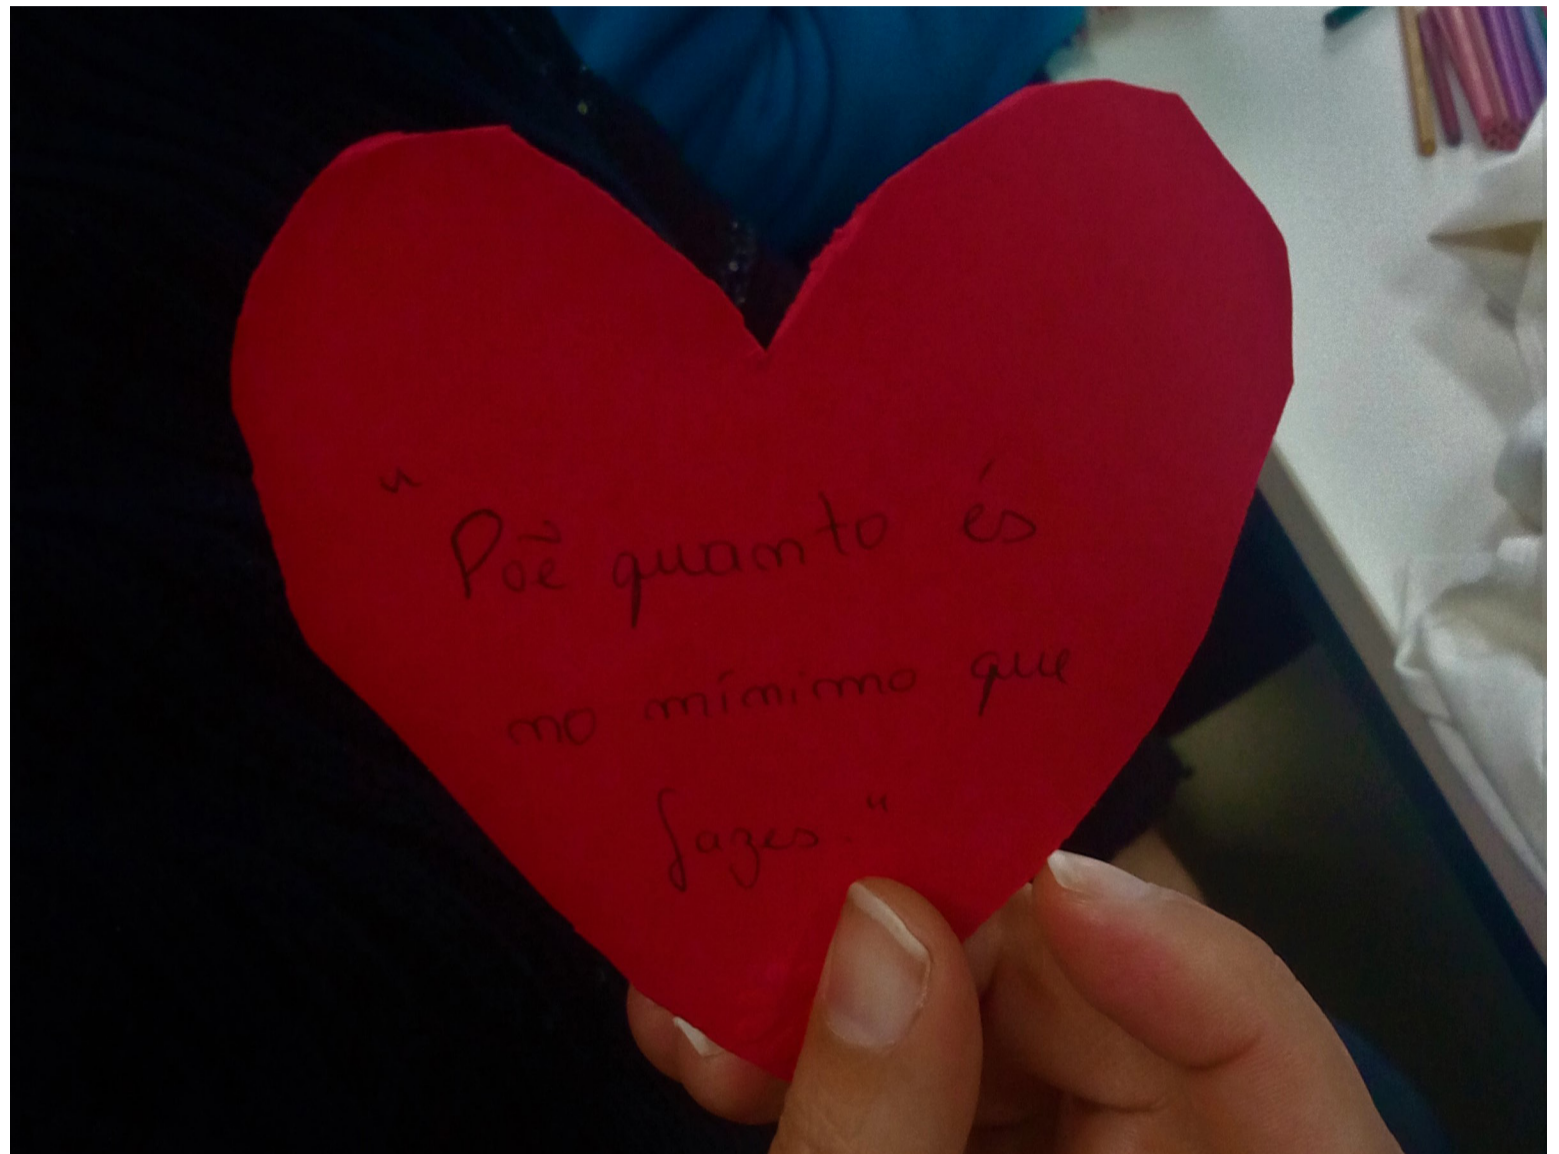 "Põe quanto és
no mínimo que
fazes."